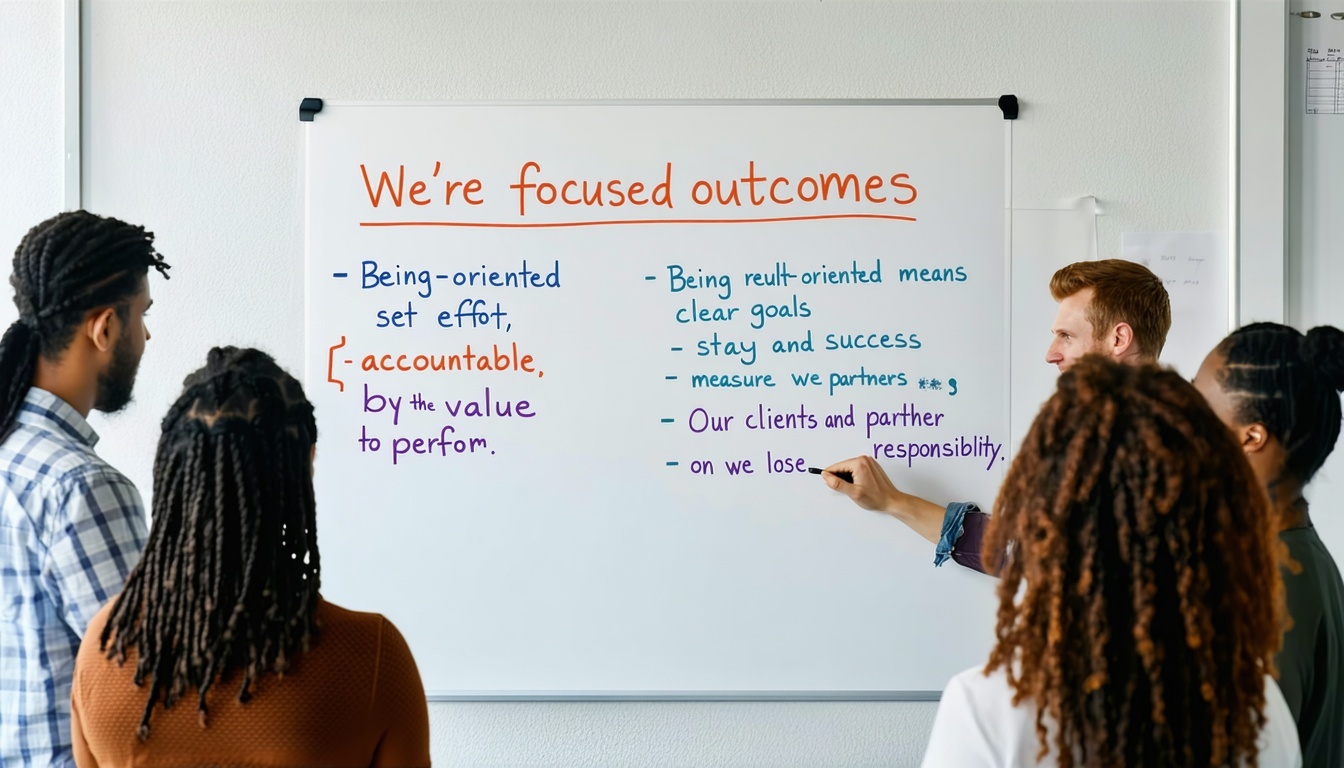 We're focused outcomes
- Being-oriented
set effot,
- accountable,
by the value
to perfom.
- Being reult-oriented means
clear goals
- stay and success
- measure we partners
- Our clients and parther
responsiblity.
- on we lose